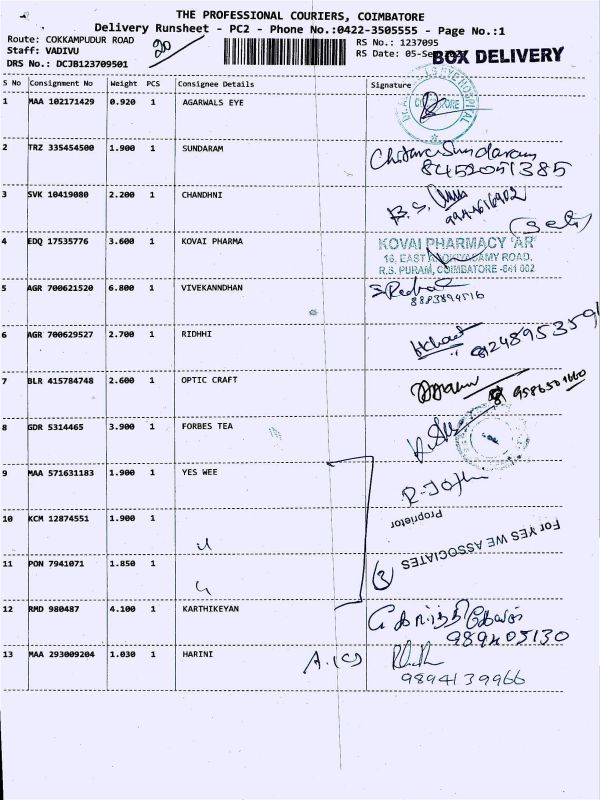 THE PROFESSIONAL COURIERS, COIMBATORE
Delivery Runsheet - PC2 - Phone No.:0422-3505555 - Page No.:1
Route: COKKAMPUDUR ROAD
Staff: VADIVU
DRS No.: DCJB123709501
20
RS No.: 1237095
RS Date: 05-Sep
BOX DELIVERY
S No Consignment No Weight PCS Consignee Details Signature
1 MAA 102171429 0.920 1 AGARWALS EYE
2 TRZ 335454500 1.900 1 SUNDARAM
8452051385
3 SVK 10419080 2.200 1 CHANDHNI
4 EDQ 17535776 3.600 1 KOVAI PHARMA
KOVAI PHARMACY 'AR'
16, EAST AROKIYASAMY ROAD,
R.S. PURAM, COIMBATORE -641 002
5 AGR 700621520 6.800 1 VIVEKANNDHAN
8883894516
6 AGR 700629527 2.700 1 RIDHHI
8124895359
7 BLR 415784748 2.600 1 OPTIC CRAFT
9586501660
8 GDR 5314465 3.900 1 FORBES TEA
9 MAA 571631183 1.900 1 YES WEE
10 KCM 12874551 1.900 1
Proprietor
For YES WE ASSOCIATES
11 PON 7941071 1.850 1
3
12 RMD 980487 4.100 1 KARTHIKEYAN
989405130
13 MAA 293009204 1.030 1 HARINI
A.(C)
9894139966